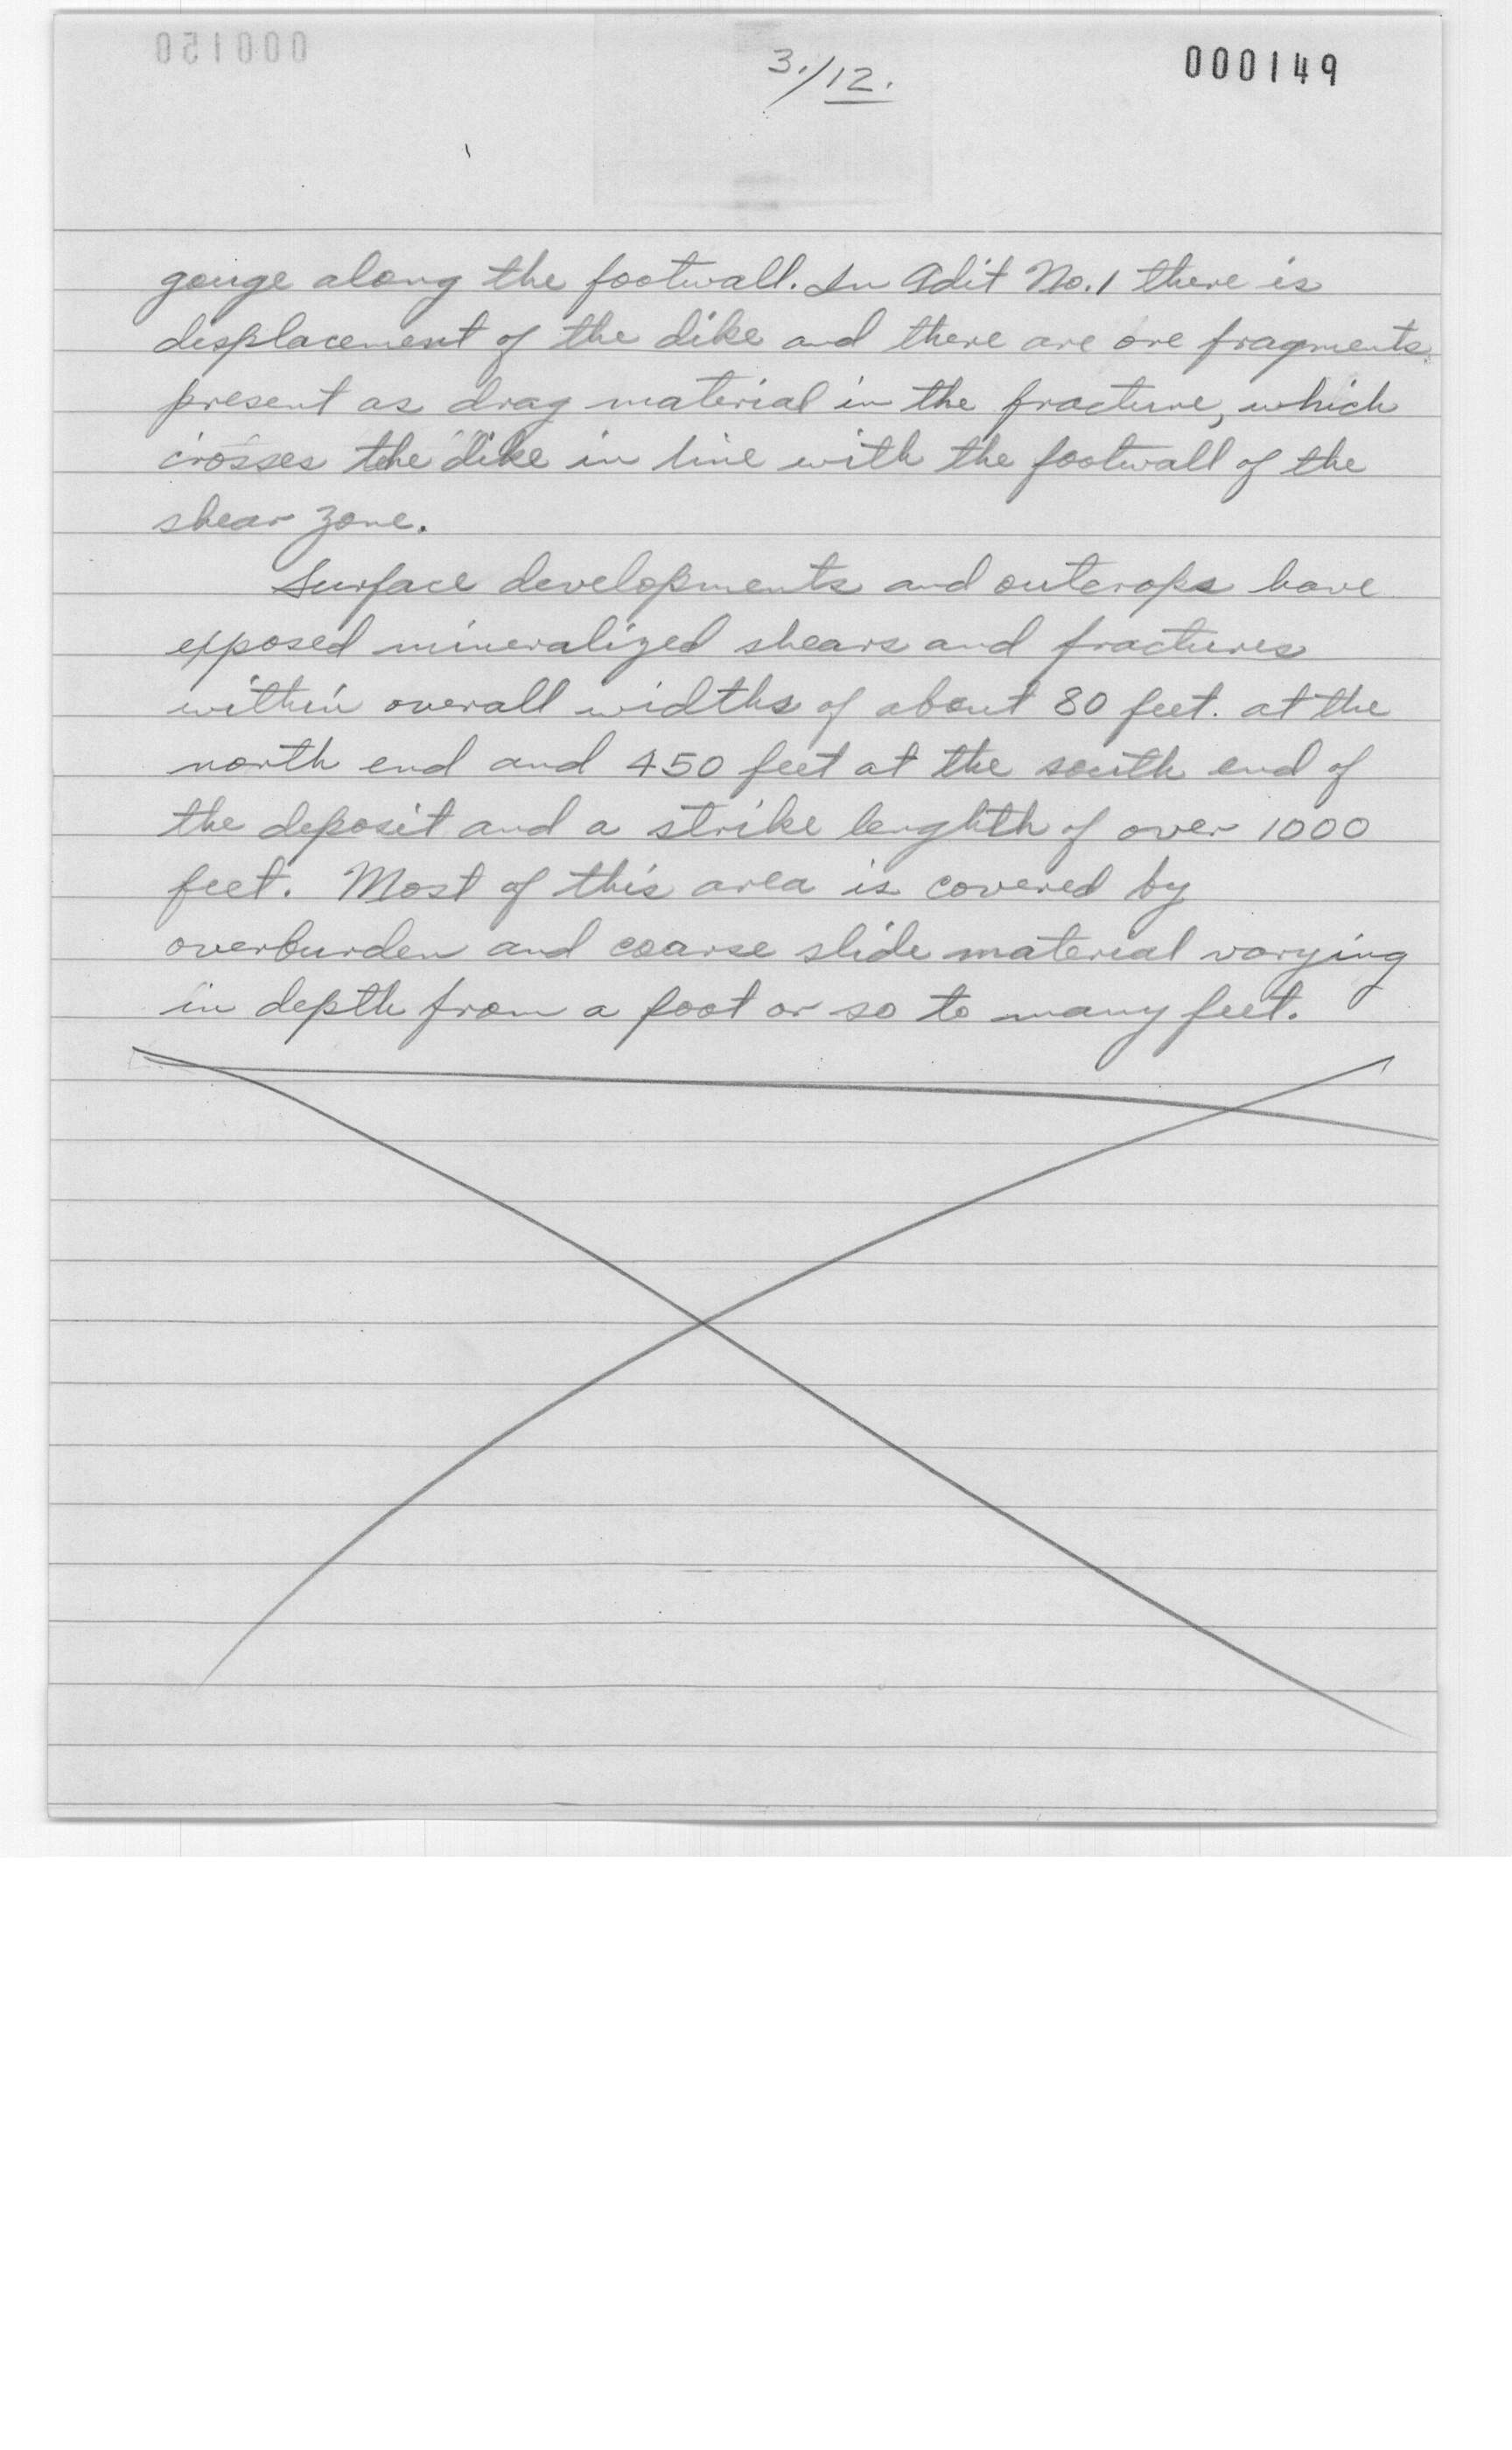 000150
3./12.
000149
gouge along the footwall. In Adit No. 1 there is
displacement of the dike and there are ore fragments
present as drag material in the fracture, which
crosses the dike in line with the footwall of the
shear zone.
Surface developments and outcrops have
exposed mineralized shears and fractures
within overall widths of about 80 feet. at the
north end and 450 feet at the south end of
the deposit and a strike lenghth of over 1000
feet. Most of this area is covered by
overburden and coarse slide material varying
in depth from a foot or so to many feet.